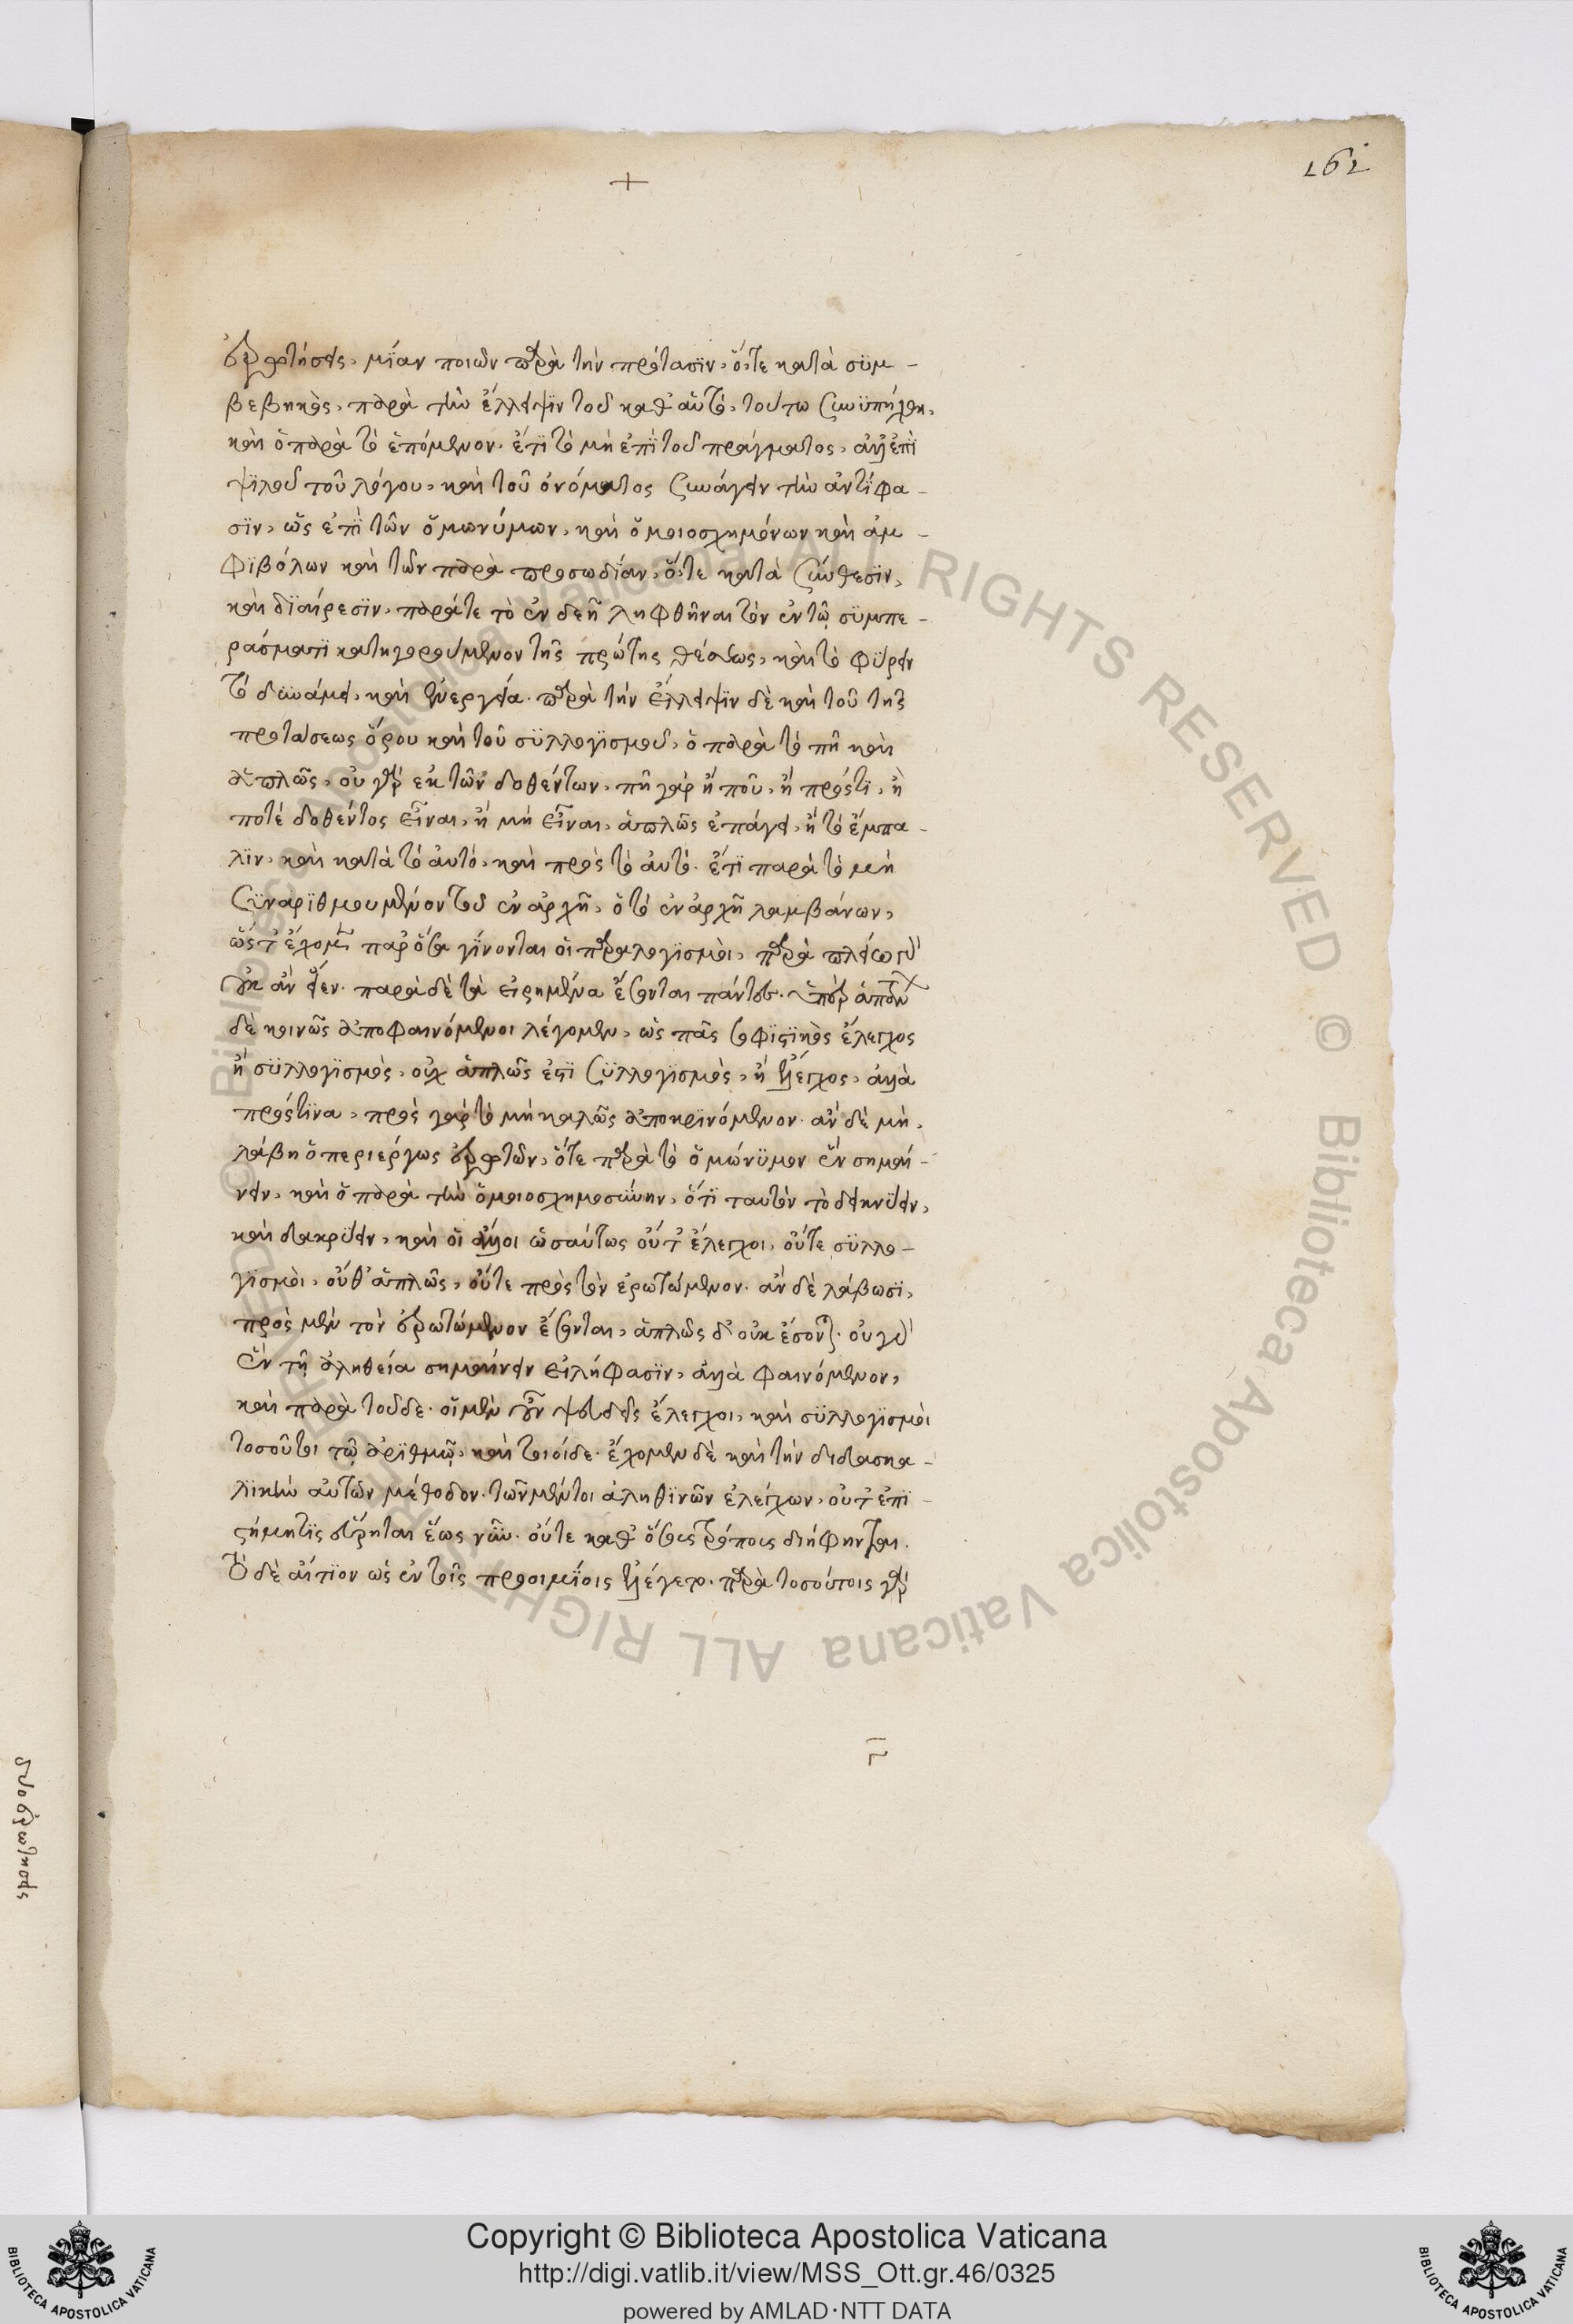 162
+
ἐρωτήσεις, μίαν ποιῶν παρὰ τὴν πρότασϊν, ὅ, τε κατὰ σϋμ-
βεβηκὸς, παρὰ τὴν ἔλλειψϊν τοῦ καθ' αὑτό, τούτω συνϋπήχθη,
καὶ ὁ παρὰ τὸ ἑπόμενον. ἔτϊ τὸ μὴ ἐπῒ τοῦ πράγματος, ἀλλ' ἐπῒ
ψϊλοῦ τοῦ λόγου, καὶ τοῦ ὀνόματος συνάγειν τὴν ἀντίφα-
σϊν, ὡς ἐπῒ τῶν ὁμωνύμων, καὶ ὁμοιοσχημόνων καὶ ἀμ-
φϊβόλων καὶ τῶν παρὰ προσωδίαν, ὅ, τε κατὰ σύνθεσϊν,
καὶ δϊαίρεσϊν, παρά τε τὸ ἐνδεῆ ληφθῆναι τὸν ἐν τῷ σϋμπε-
ράσματϊ κατηγορούμενον τῆς πρώτης θέσεως, καὶ τὸ φύρειν
τὸ δυνάμει, καὶ ἐνεργεία. παρὰ τὴν ἔλλειψϊν δὲ καὶ τοῦ τῆς
προτάσεως ὅρου καὶ τοῦ σϋλλογϊσμοῦ, ὁ παρὰ τὸ πῆ καὶ
ἁπλῶς, οὐ γὰρ ἐκ τῶν δοθέντων, πῆ γὰρ ἤ ποῦ, ἢ πρός τϊ, ἢ
ποτὲ δοθέντος εἶναι, ἢ μὴ εἶναι, ἁπλῶς ἐπάγει, ἢ τὸ ἔμπα-
λϊν, καὶ κατὰ τὸ αὐτό, καὶ πρὸς τὸ αὐτό. ἔτϊ παρὰ τὸ μὴ
συναρϊθμουμένου τοῦ ἐν ἀρχῆ, ὁ τὸ ἐν ἀρχῆ λαμβάνων,
ὥστ' ἔχομεν παρ' ὅσα γίνονται οἱ παραλογϊσμοὶ, παρὰ πλείω γὰρ
οὐκ ἂν εἶεν. παρὰ δὲ τὰ εἰρημένα ἔσονται πάντες.
δὲ κοινῶς ἀποφαινόμενοι λέγομεν, ὡς πᾶς σοφϊστϊκὸς ἔλεγχος
ἢ σϋλλογϊσμὸς, οὐχ ἁπλῶς ἐστϊ σϋλλογϊσμὸς, ἢ ἔλεγχος, ἀλλὰ
πρός τϊνα, πρὸς γὰρ τὸ μὴ καλῶς ἀποκρϊνόμενον. ἂν δὲ μὴ,
λάβη ὁ περιέργως ἐρωτῶν, ὅτε παρὰ τὸ ὁμώνϋμον ἓν σημαί-
νειν, καὶ ὁ παρὰ τὴν ὁμοιοσχημοσύνην, ὅτϊ ταυτὸν τὸ δεικνύειν,
καὶ διακρίνειν, καὶ οἱ ἄλλοι ὡσαύτως οὔτ' ἔλεγχοι, οὔτε σϋλλο-
γϊσμοὶ, οὔθ' ἁπλῶς, οὔτε πρὸς τὸν ἐρωτώμενον. ἂν δὲ λάβωσϊ,
πρὸς μὲν τὸν ἐρωτώμενον ἔσονται, ἁπλῶς δ' οὐκ ἔσονται. οὐ γὰρ
ἓν τῆ ἀληθεία σημαίνειν εἰλήφασϊν, ἀλλὰ φαινόμενον,
καὶ παρὰ τοῦδε. οἱ μὲν οὖν ψευδεῖς ἔλεγχοι, καὶ σϋλλογϊσμοὶ
τοσοῦτοι τῷ ἀρϊθμῷ, καὶ τοιοίδε. ἔχομεν δὲ καὶ τὴν διδασκα-
λϊκὴν αὐτῶν μέθοδον. τῶν μέντοι ἀληθϊνῶν ἐλέγχων, οὔτ' ἐπϊ-
στήμη τϊς εὕρηται ἕως νῦν. οὔτε καθ' ὅσους τρόπους διήρηνται.
τὸ δὲ αἴτϊον ὡς ἐν τοῖς προοιμΐοις ἐλέγετο. παρὰ τοσούτοις γὰρ
ἐρωτήσεις
Copyright © Biblioteca Apostolica Vaticana
http://digi.vatlib.it/view/MSS_Ott.gr.46/0325
powered by AMLAD·NTT DATA
BIBLIOTECA APOSTOLICA VATICANA
BIBLIOTECA APOSTOLICA VATICANA
© Biblioteca Apostolica Vaticana ALL RIGHTS RESERVED © Biblioteca Apostolica Vaticana ALL RIGHTS RESERVED